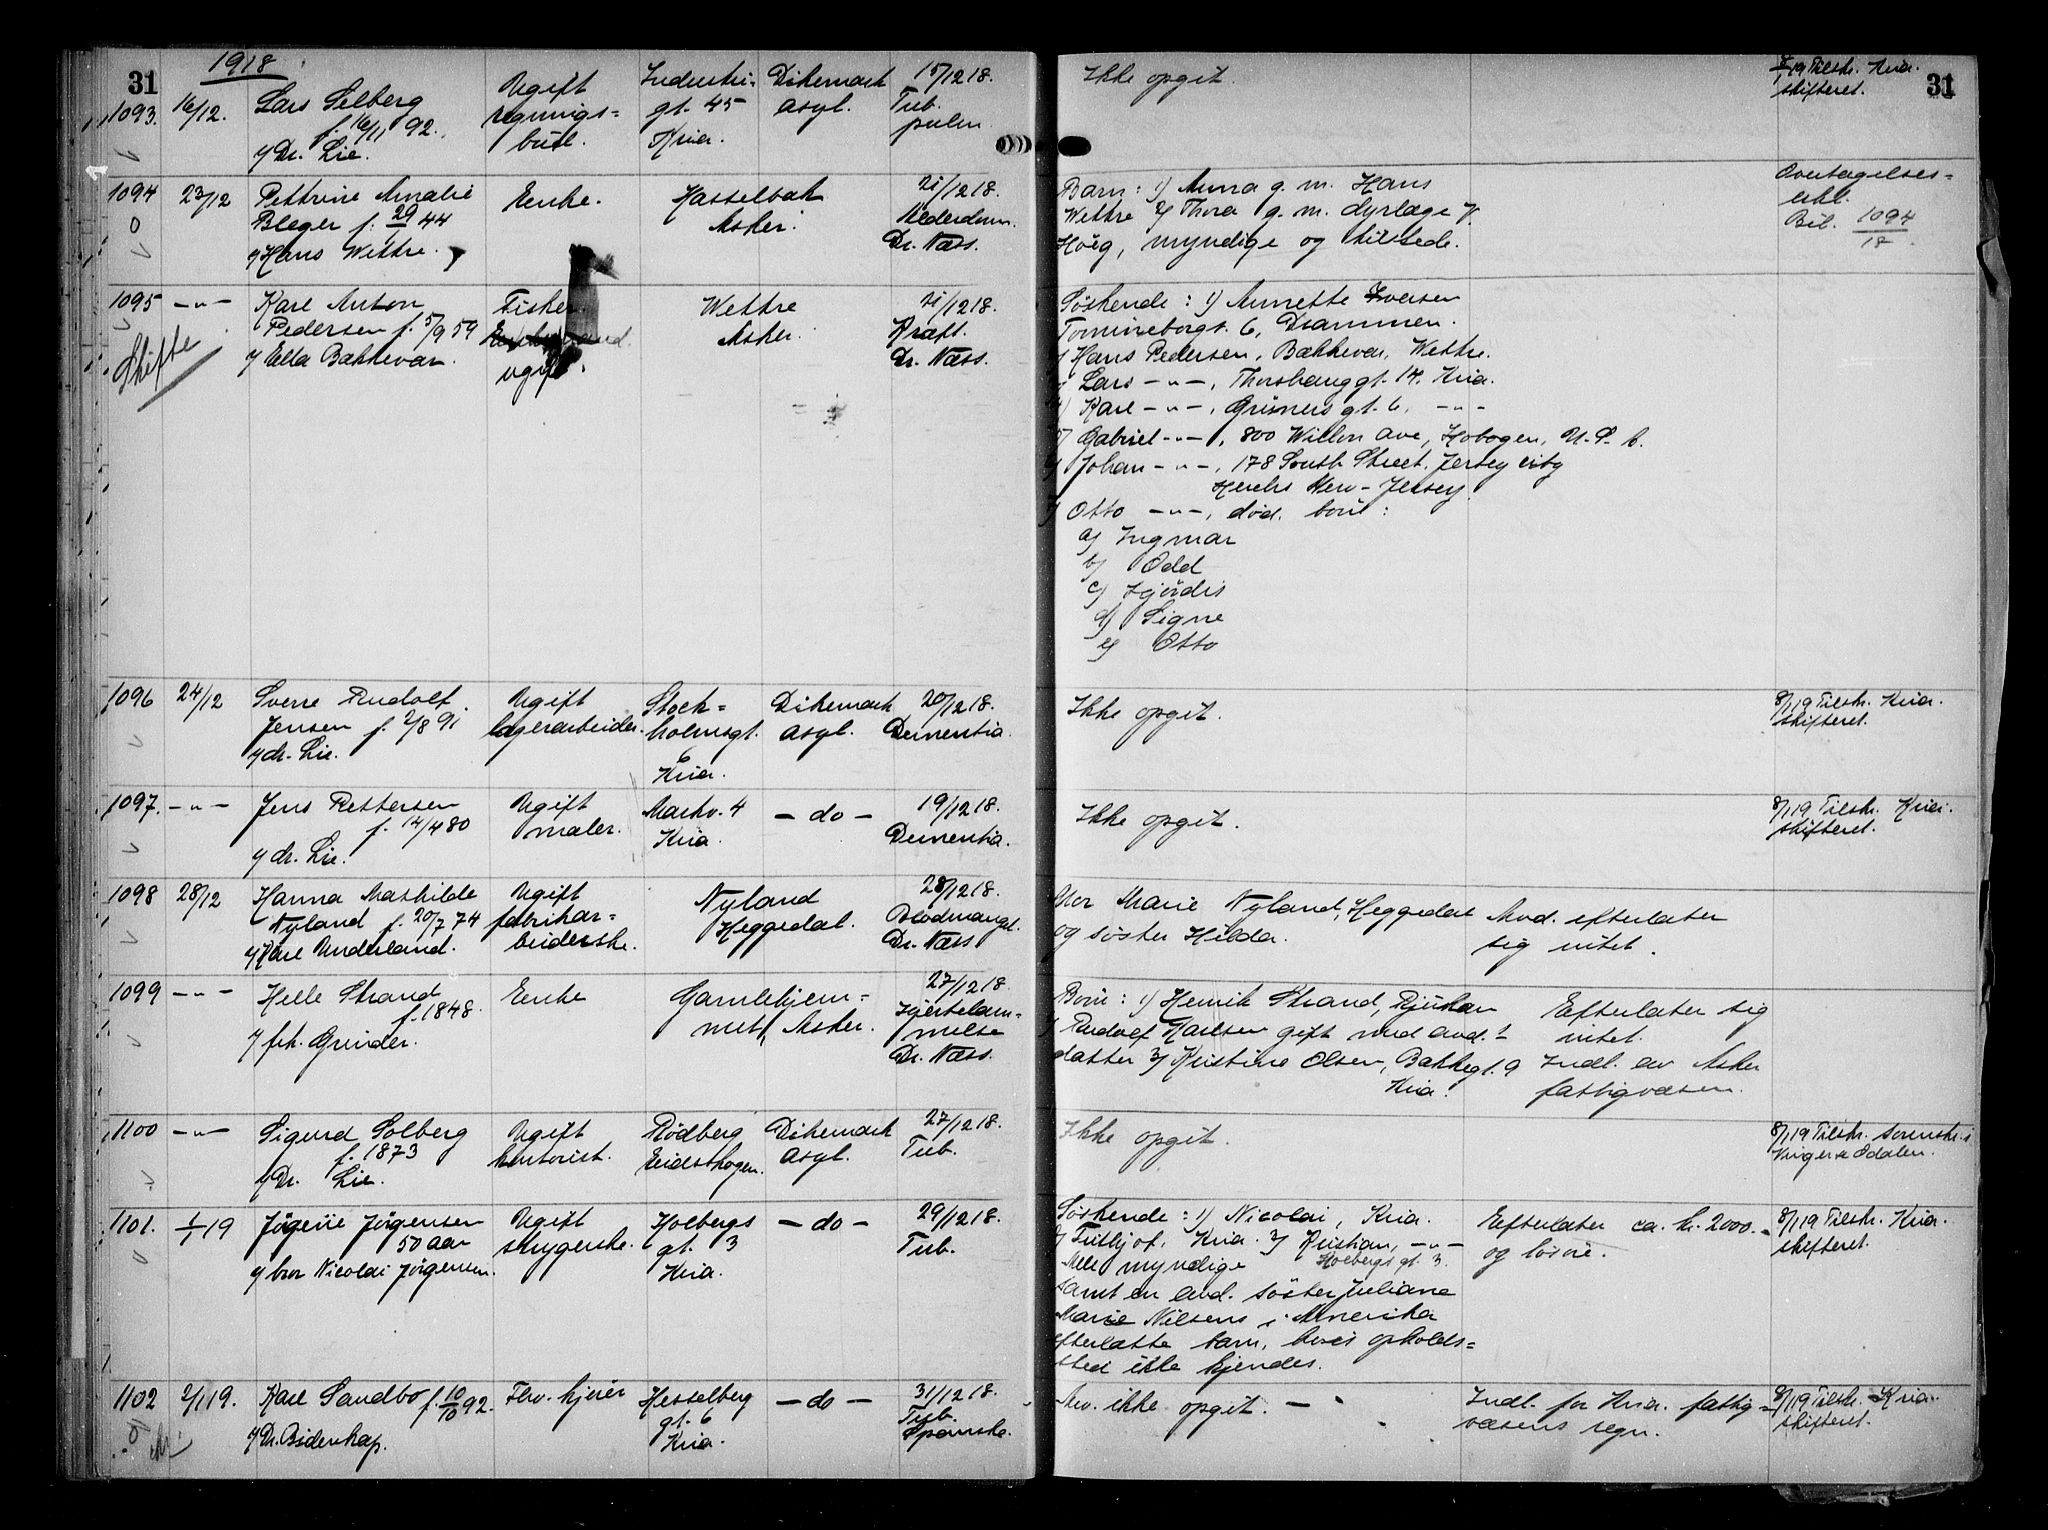 31
1918
31
1093. 16/12. Lars Selberg
f. 16/11 92.
v/ Dr. Lie.
Ugift
regnings=
bud.
Industri-
gt. 45
Kria.
Dikemark
asyl.
15/12 18.
Tub.
pulm.
Ikke opgit.
8/1 19 Tilskr. Kria.
skifteret.
1094 23/12 Pettrine Amalie
Bleger f. 29/1 44
v/ Hans Wettre.
Enke.
Hasselbak
Asker.
21/12 18.
Alderdom.
Dr. Næss.
Barn: 1) Anna g. m. Hans
Wettre 2) Thora g. m. dyrlæge V.
Høeg, myndige og tilstede.
Overtagelses=
erkl.
Bil. 1094/18.
1095 -"- Karl Anton
Pedersen f. 5/9 59
v/ Ella Bakkevar
Skifte
Fisker
ugift.
Wettre
Asker.
21/12 18.
Kræft.
Dr. Næss.
Søskende: 1) Annette Iversen
Tomineborgt. 6, Drammen.
2) Hans Pedersen, Bakkevar, Wettre.
3) Lars -"-, Thorshauggt. 14, Kria.
4) Karl -"-, Grüners gt. 6, -"-
5) Gabriel -"-, 800 Willow Ave, Hobogen, U.S.A.
6) Johan -"-, 178 South Street, Jersey city
New-Jersey.
7) Otto -"-, død. barn:
a) Ingmar
b) Odd
c) Hjørdis
d) Signe
e) Otto
1096 24/12 Sverre Rudolf
Jensen f. 2/8 91
v/ dr. Lie.
Ugift
lagerarbeider.
Stock=
holmsgt.
6
Kria.
Dikemark
asyl.
20/12 18.
Dementia.
Ikke opgit.
8/1 19 Tilskr. Kria.
skifteret.
1097. -"- Jens Pettersen
f. 14/4 80
v/ dr. Lie.
Ugift
maler.
Markv. 4
Kria.
- do -
19/12 18.
Dementia.
Ikke opgit.
8/1 19 Tilskr. Kria.
skifteret.
1098 28/12 Hanna Mathilde
Nyland f. 20/7 74
v/ Karl Underland.
Ugift
fabrikar=
beiderske.
Nyland
Heggedal.
28/12 18.
Blodmangel.
Dr. Næss
Mor Marie Nyland, Heggedal
og søster Hilda.
Avd. efterlater
sig intet.
1099 -"- Helle Strand
f. 1848.
v/ frk. Grinder.
Enke
Gamlehjem=
met, Asker.
27/12 18.
Hjertelam=
melse
Dr. Næss.
Barn: 1) Henrik Strand, Rjukan
2) Rudolf Karlsen gift med avd.s
datter 3) Kristine Olsen, Bakkegt. 9
Kria.
Efterlater sig
intet.
Indl. av Asker
fattigvæsen.
1100 -"- Sigurd Solberg
f. 1873
v/ Dr. Lie.
Ugift
kontorist.
Rödberg
Eidskogen.
Dikemark
Asyl.
27/12 18.
Tub.
Ikke opgit.
8/1 19 Tilskr. sorenskr. i
Vinger & Odalen.
1101. 1/1 19 Jørgine Jørgensen
50 aar
v/ bror Nicolai Jørgensen.
Ugift
strygerske.
Holbergs
gt. 3
Kria.
- do -
29/12 18.
Tub.
Søskende: 1) Nicolai, Kria.
2) Fritjof, Kria. 3) Kristian, -"-
Alle myndige Holbergs gt. 3.
samt en avd. søster Juliane
Marie Nilsens i Amerika
efterlatte barn, hvis opholds=
sted ikke kjendes.
Efterlater ca. kr. 2000.-
og løsøre.
8/1 19 Tilskr. Kria.
skifteret.
1102 2/1 19. Karl Sandbo f. 10/10 92.
v/ Dr. Bidenkap.
Fhv. kjører
Hesselberg
gt. 6
Kria.
- do -
31/12 18.
Tub.
Spanske.
Arv. ikke opgit. -
Indl. for Kria. fattig=
væsens regn.
8/1 19 Tilskr. Kria.
skifteret.